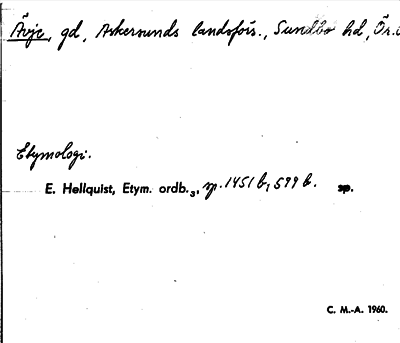 Ävje, gd, Askersunds landsförs., Sundbo hd, Ör.
Etymologi.
E. Hellquist, Etym. ordb.₃, sp. 1451 b, 599 b. sp.
C. M.-A. 1960.